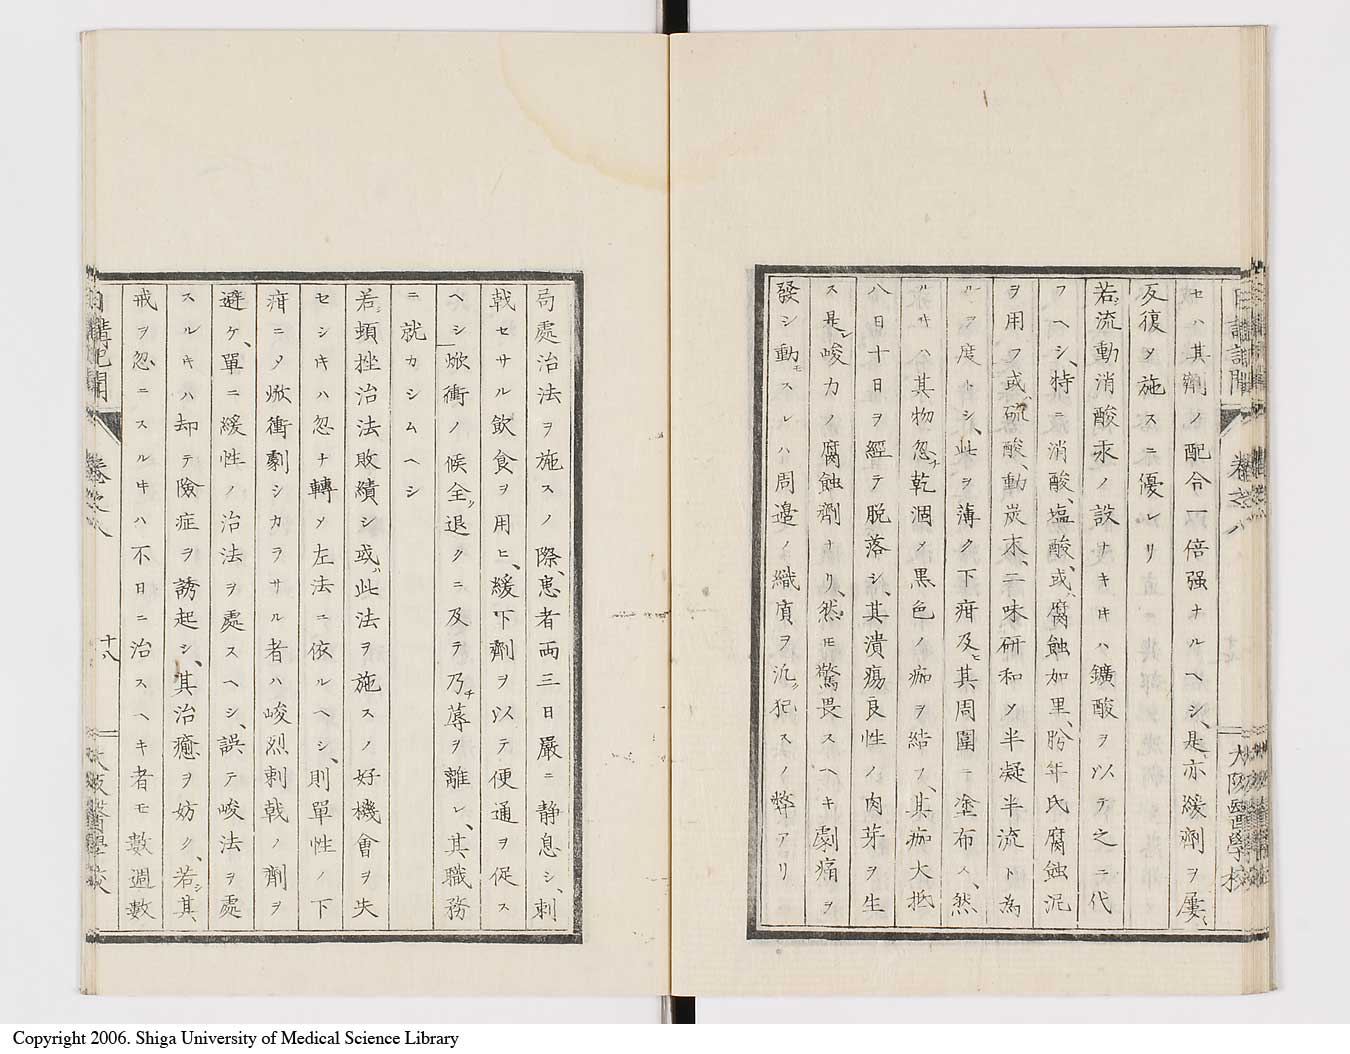 セハ其劑ノ配合一倍强ナルヘシ、是亦緩劑ヲ屢〻
反復〆施スニ優レリ
若流動消酸汞ノ設ナキキハ鑛酸ヲ以テ之ニ代
フヘシ、特ニ消酸、塩酸、或腐蝕加里、肹年氏腐蝕泥
ヲ用フ或硫酸、動炭末、二味研和〆半凝半流ト為
ルヲ度トシ、此ヲ薄ク下疳及ヒ其周圍ニ塗布ス、然
ルキハ其物忽チ乾涸〆黒色ノ痂ヲ結フ、其痂大抵
八日十日ヲ經テ脱落シ、其潰瘍良性ノ肉芽ヲ生
ス是レ峻力ノ腐蝕劑ナリ、然モ驚畏スヘキ劇痛ヲ
發シ動モスレハ周邉ノ織質ヲ氿犯スノ弊アリ
日講記聞
卷之八
大阪醫學校
局處治法ヲ施スノ際、患者両三日嚴ニ静息シ、刺
戟セサル飲食ヲ用ヒ、緩下劑ヲ以テ便通ヲ促ス
ヘシ焮衝ノ候全ク退クニ及テ乃チ蓐ヲ離レ、其職務
ニ就カシムヘシ
若シ頓挫治法敗績シ或ハ此法ヲ施スノ好機會ヲ失
セシキハ忽ナ轉〆左法ニ依ルヘシ、則單性ノ下
疳ニ〆焮衝劇シカラサル者ハ峻烈刺戟ノ劑ヲ
避ケ、單ニ緩性ノ治法ヲ處スヘシ、誤テ峻法ヲ處
スルキハ却テ險症ヲ誘起シ、其治癒ヲ妨ク、若シ其
戒ヲ忽ニスルキハ不日ニ治スヘキ者モ數週數
日講記聞
卷之八
十八
大阪醫學校
Copyright 2006. Shiga University of Medical Science Library